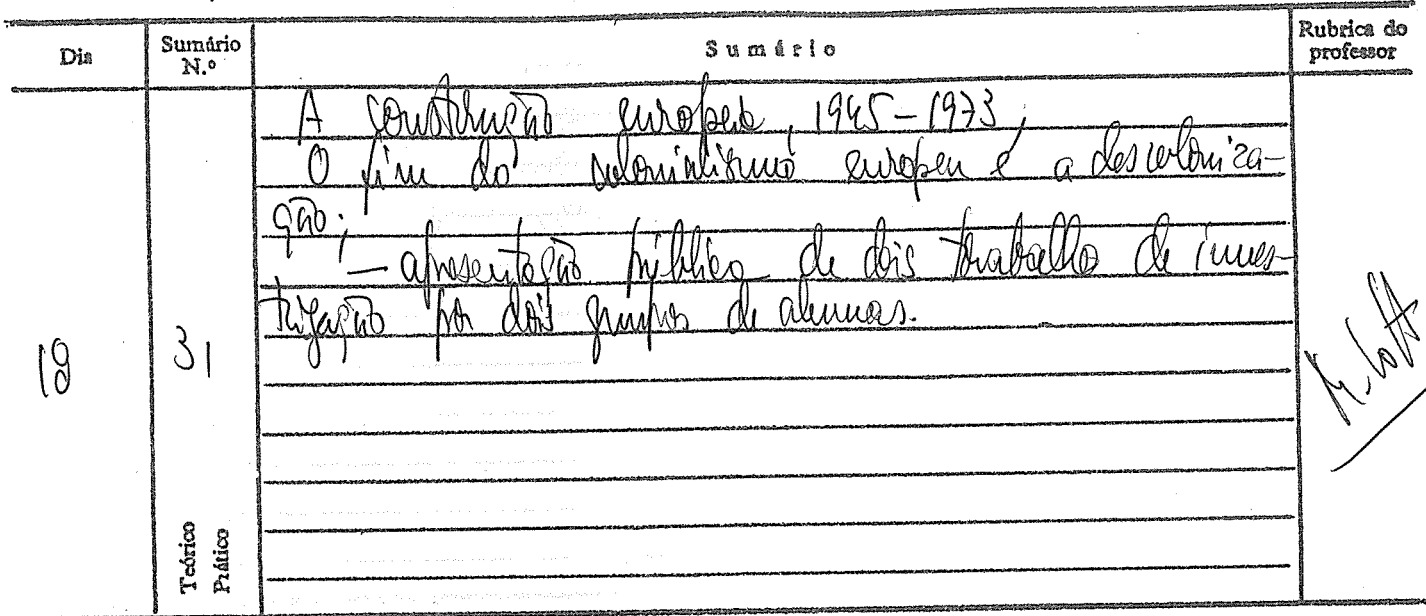 Dia Sumário N.º Sumário Rubrica do professor
A construção europeia, 1945-1973;
O fim do colonialismo europeu e a descoloniza-
ção;
— apresentação pública de dois trabalho de inves-
tigação por dois grupos de alunas.
18 31
Teórico
Prático